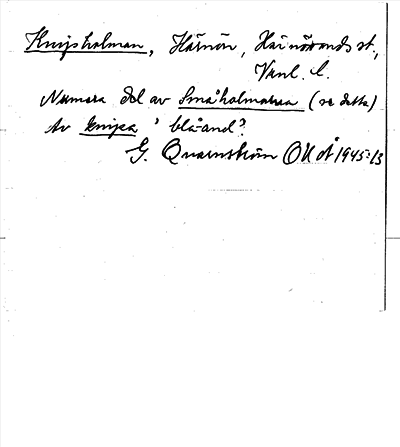 Knipsholman, Härnön, Härnösands st.,
Vänl. l.
Numera del av Småholmarna (se detta)
Av knipa 'blåand?
G. Quarnström OUÅ 1945:13